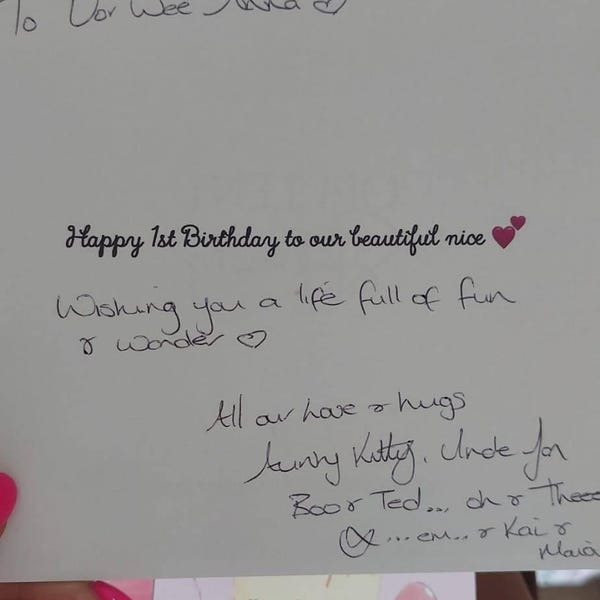 To Our Wee
Happy 1st Birthday to our beautiful nice 💕
Wishing you a life full of fun
& wonder ♡
All our love & hugs
Aunny Kitty, Uncle Jon
Boo & Ted... oh & Theee
& ...em.. & Kai &
Maia